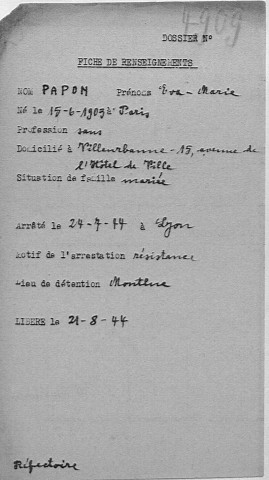 4969
DOSSIER N°
FICHE DE RENSEIGNEMENTS
NOM PAPON Prénoms Eva-Marie
Né le 15-6-1903 à Paris
Profession sans
Domicilié à Villeurbanne - 15, avenue de
l'Hôtel de Ville
Situation de famille mariée
Arrêté le 24-7-44 à Lyon
Motif de l'arrestation résistance
Lieu de détention Montluc
LIBERE le 21-8-44
Réfectoire